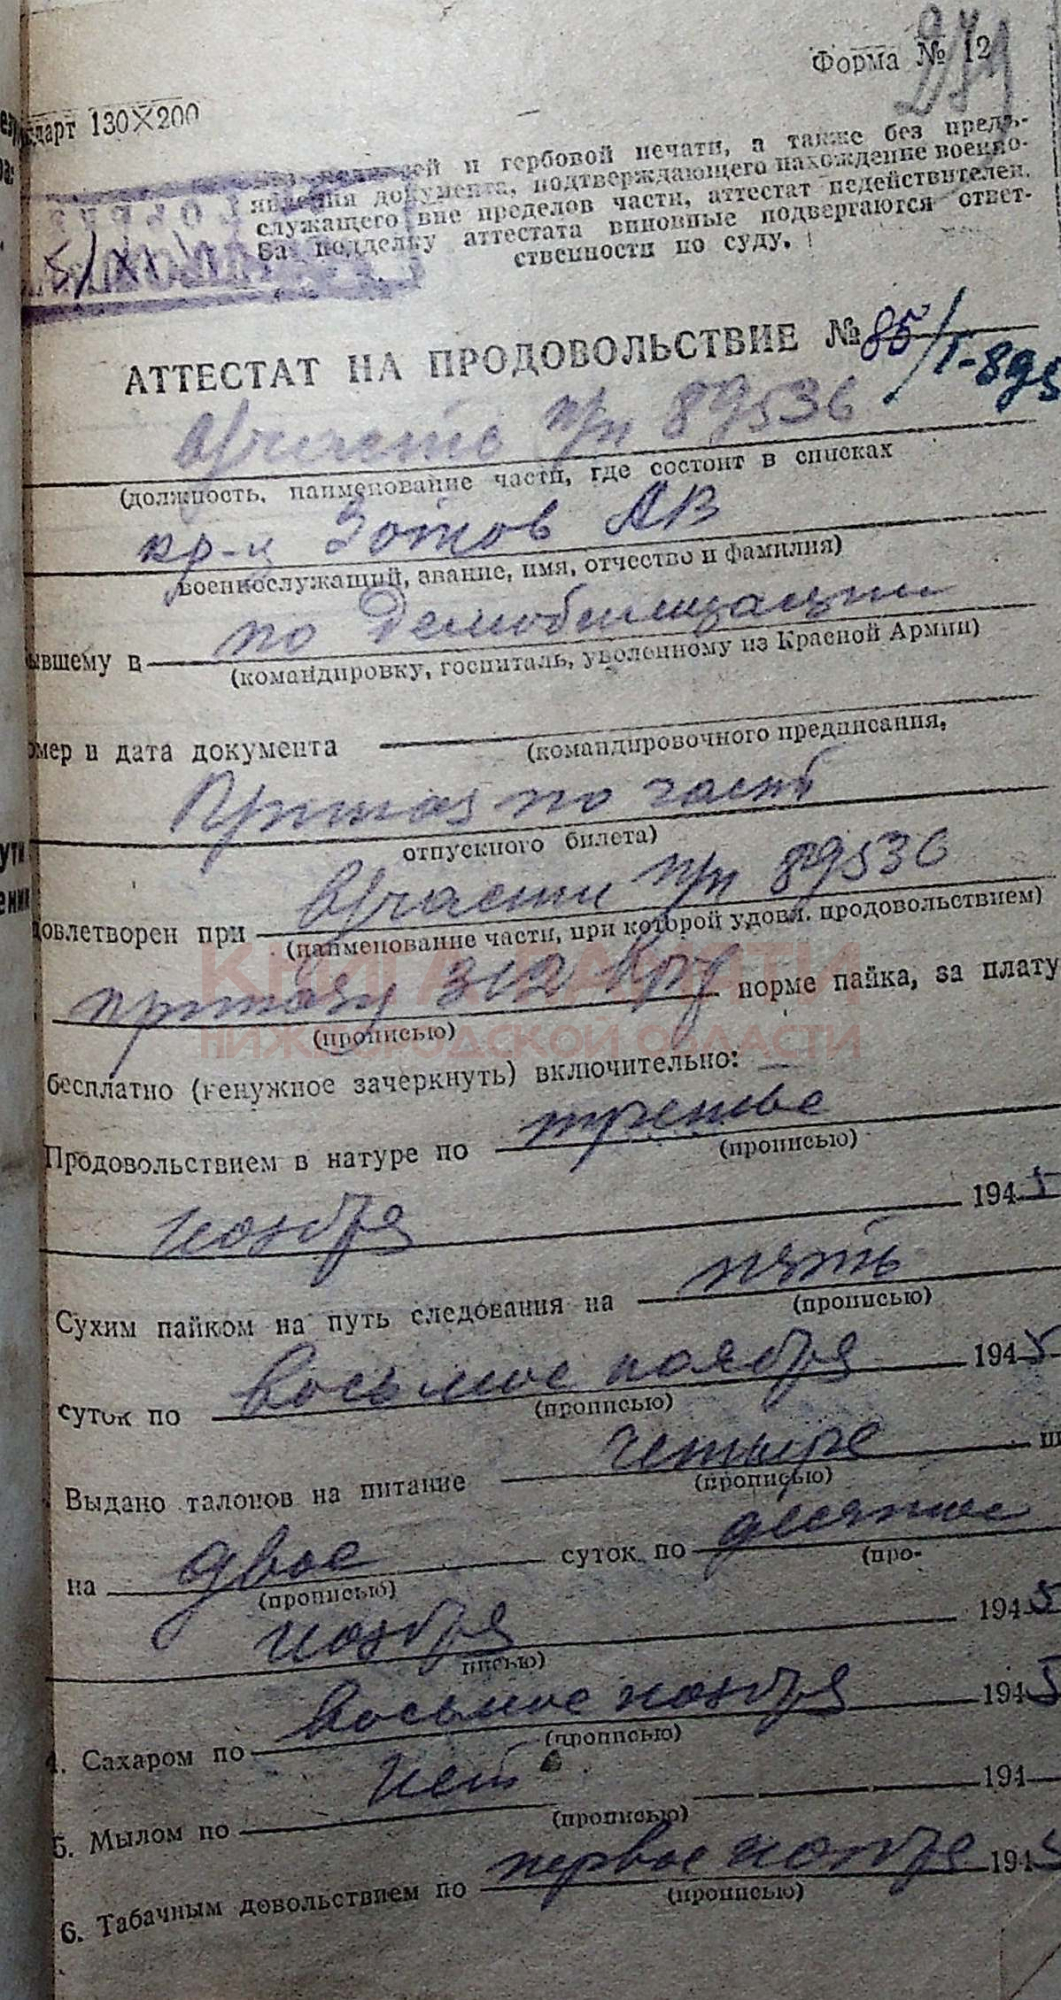 279
Форма № 12
ндарт 130×200
Без подписей и гербовой печати, а также без предъ-
явления документа, подтверждающего нахождение военно-
служащего вне пределов части, аттестат недействителен.
За подделку аттестата виновные подвергаются ответ-
ственности по суду.
5/XI
АТТЕСТАТ НА ПРОДОВОЛЬСТВИЕ № 85/Т-895
В/части п/п 89536
(должность, наименование части, где состоит в списках
кр-ц Зотов АВ
военнослужащий, звание, имя, отчество и фамилия)
ывшему в по демобилизации
(командировку, госпиталь, уволенному из Красной Армии)
омер и дата документа
(командировочного предписания,
Приказ по части
отпускного билета)
довлетворен при В/части п/п 89536
(наименование части, при которой удовл. продовольствием)
приказу 312 норме пайка, за плату
(прописью)
бесплатно (ненужное зачеркнуть) включительно:
Продовольствием в натуре по третье
(прописью)
ноября 1945
Сухим пайком на путь следования на пять
(прописью)
суток по восьмое ноября 1945
(прописью)
Выдано талонов на питание четыре ш
(прописью)
на двое суток по десятое
(прописью) (про-
ноября 1945
писью)
4. Сахаром по восьмое ноября 1945
(прописью)
5. Мылом по нет 194
(прописью)
6. Табачным довольствием по первое ноября 1945
(прописью)
КНИГА ПАМЯТИ
НИЖЕГОРОДСКОЙ ОБЛАСТИ